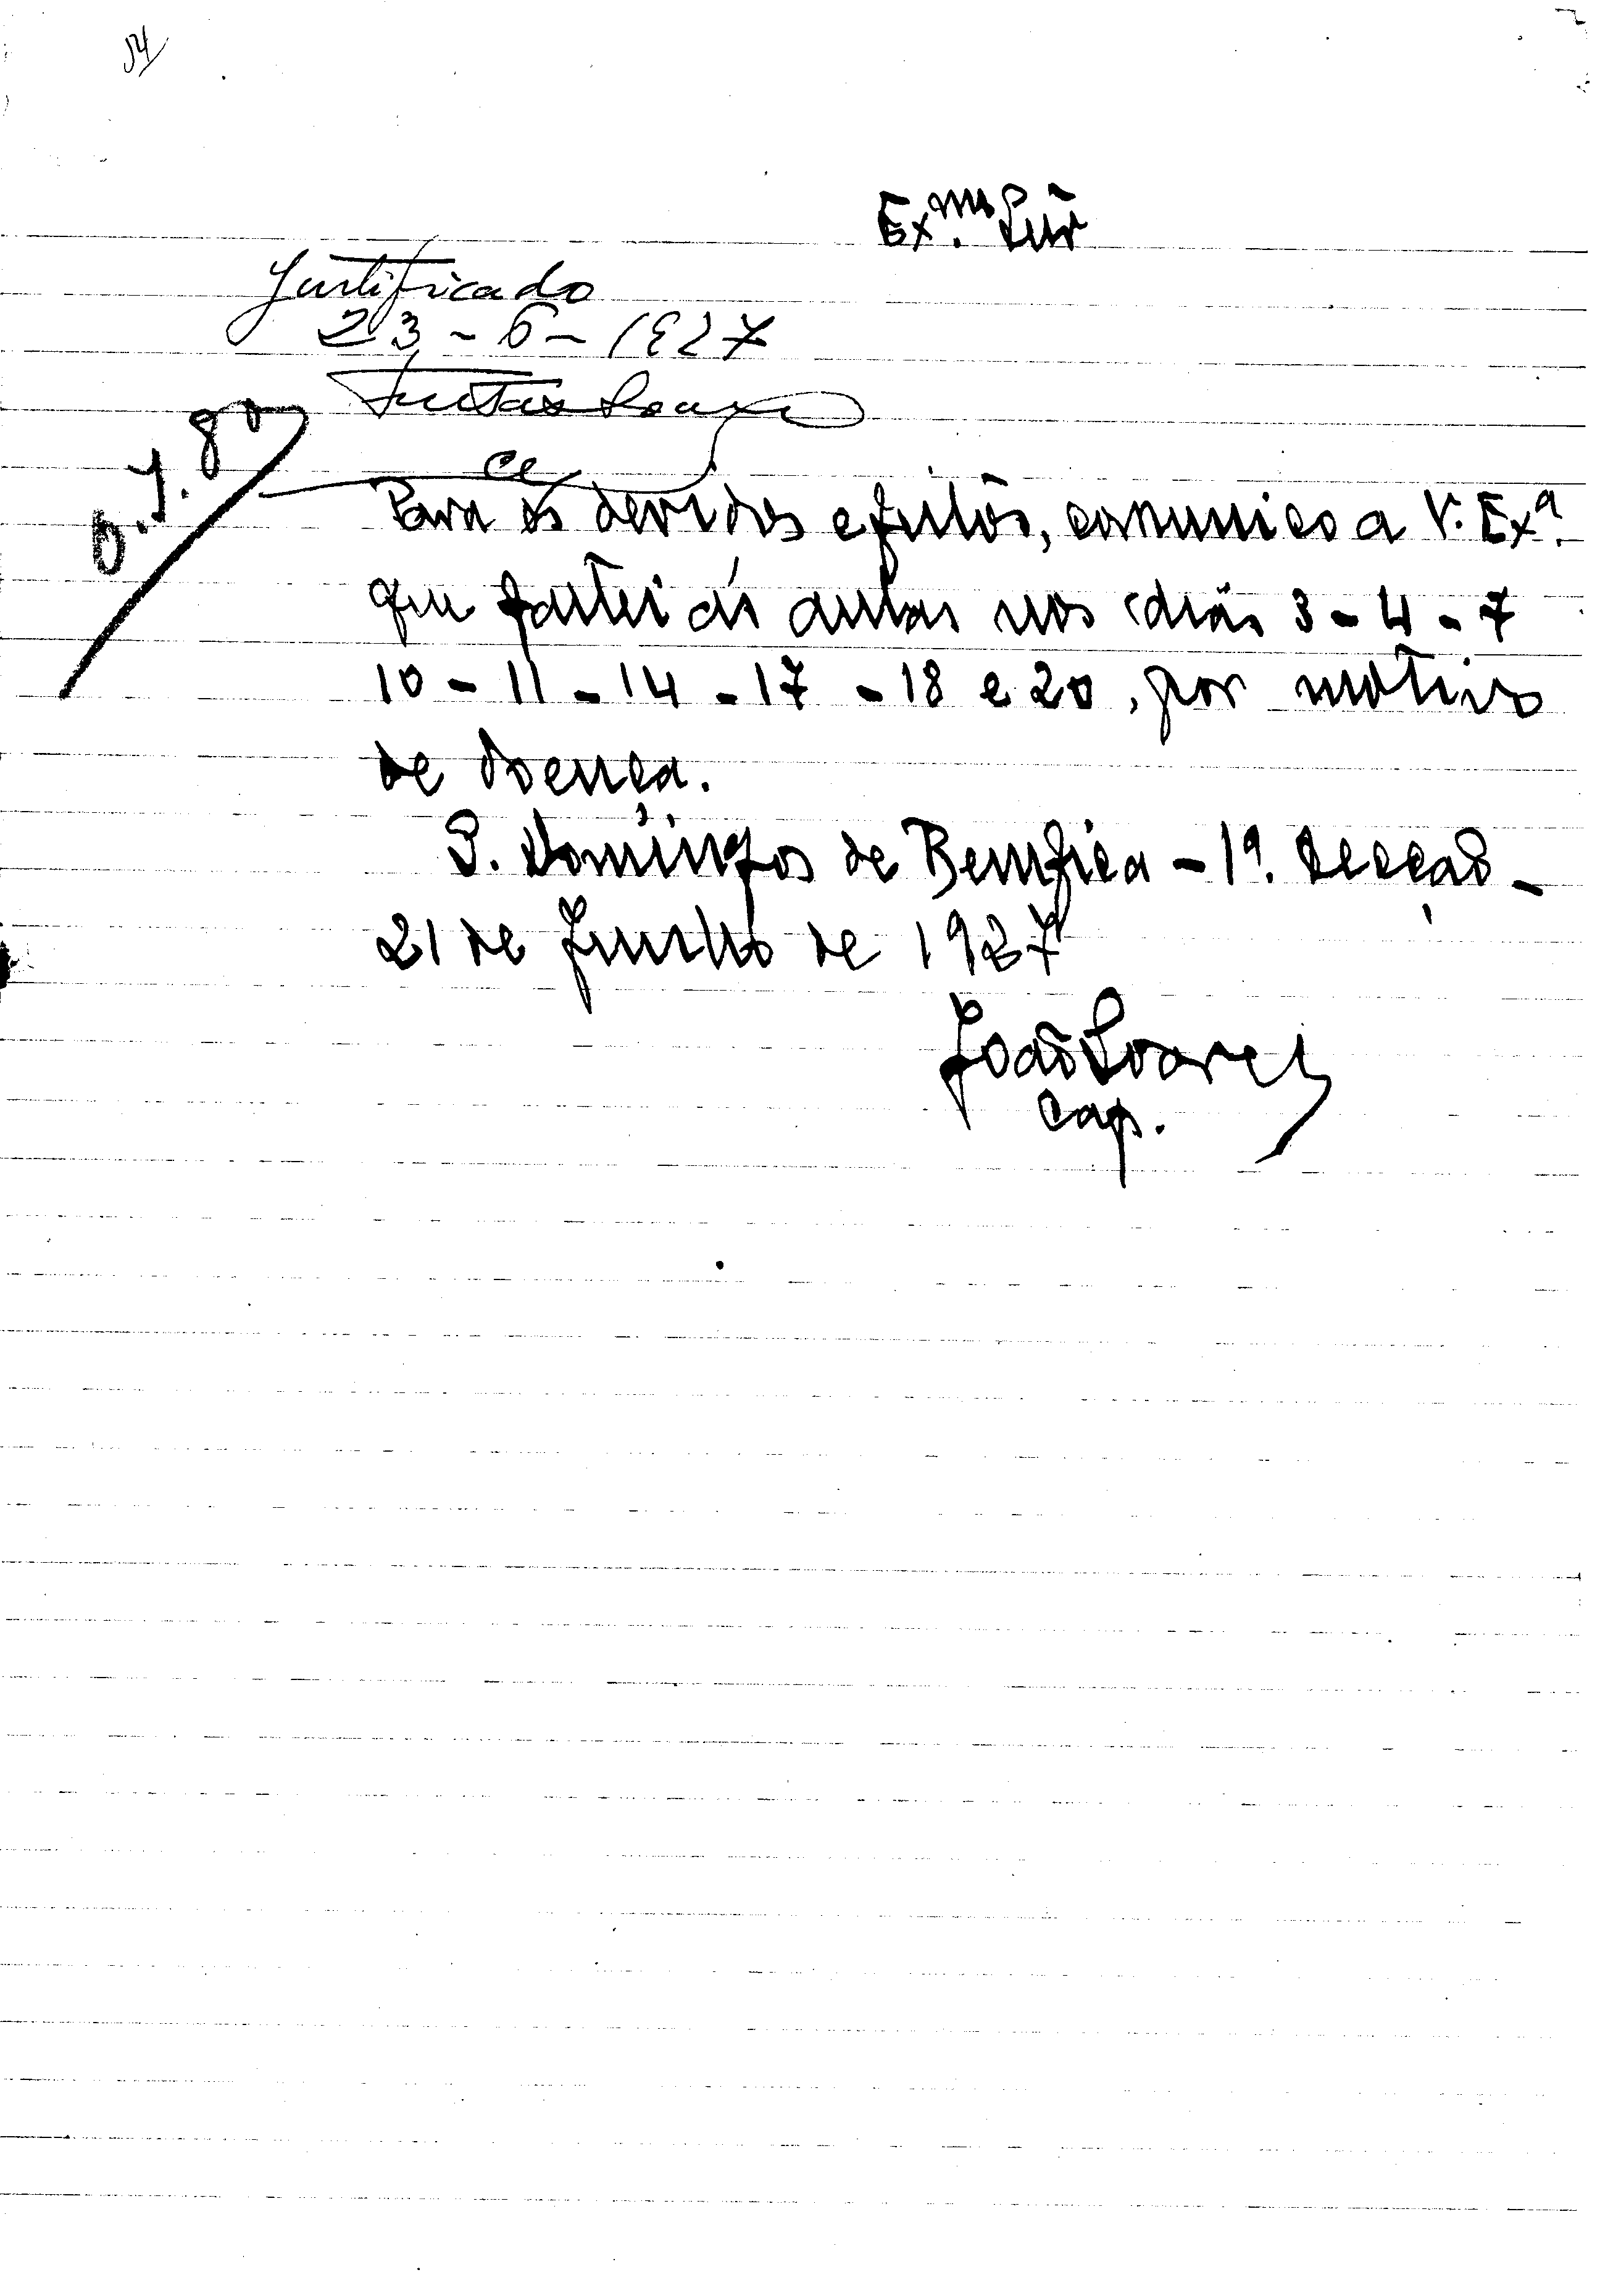 54
Exmo. Snr
Justificado
23-6-1927
Para os devidos efeitos, comunico a V. Exª.
que faltei ás aulas nos dias 3-4-7
10-11-14-17-18 e 20, por motivo
de doença.
S. Domingos de Bemfica - 1ª. Secção -
21 de Junho de 1927
João Soares
Cap.